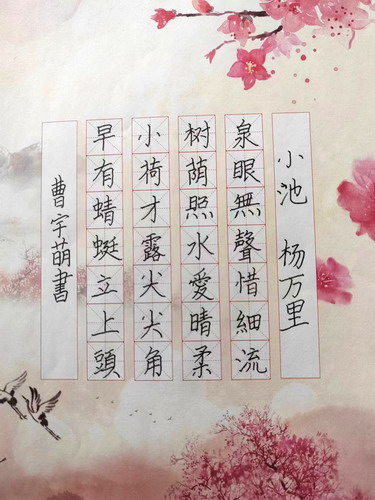 小池 杨万里
泉眼無聲惜细流
树荫照水愛晴柔
小荷才露尖尖角
早有蜻蜓立上頭
曹宇萌書